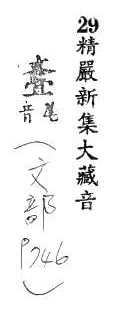 29精嚴新集大藏音
尾
音
（文部
P746）